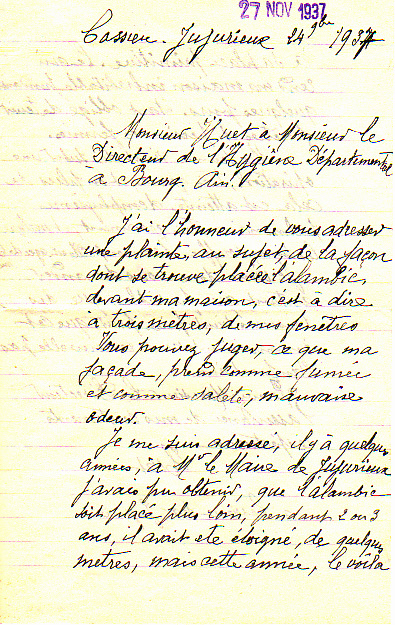 27 NOV 1937
Cossieu - Jujurieux 24 9bre 1937
Monsieur Huet à Monsieur le
Directeur de l'Hygiène Départemental
à Bourg. Ain.
J'ai l'honneur de vous adresser
une plainte, au sujet, de la façon
dont se trouve placée l'alambic,
devant ma maison, c'est à dire
à trois mètres, de mes fenêtres
Vous pouvez juger, ce que ma
façade, prend comme fumée
et comme saleté, mauvaise
odeur.
Je me suis adressé, il y à quelques
années, à Mr le Maire de Jujurieux
j'avais pu obtenir, que l'alambic
soit placé plus loin, pendant 2 ou 3
ans, il avait été éloigné, de quelques
mètres, mais cette année, le voila